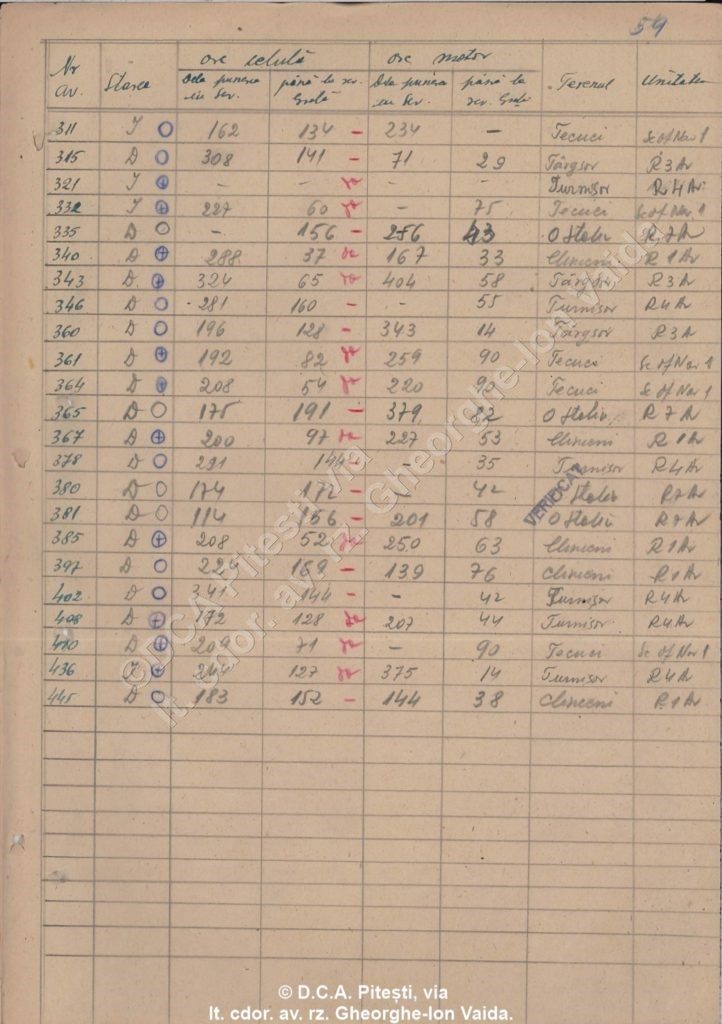 54
Nr av. Starea ore celulă ore motor Terenul Unitatea
Dela punerea în serv. până la rev. Grală Dela punerea în serv. până la rev. Grală
311 I 162 134 - 234 - Tecuci Sc of Nav. 1
315 D 308 141 - 71 29 Târgșor R 3 Av
321 I - - - - Turnișor R 4 Av.
332 I 227 60 - 75 Tecuci Sc of Nav. 1
335 D - 156 - 256 43 O Stolic R 7 Av
340 D 288 37 167 33 Clinceni R 1 Av
343 D. 324 65 404 58 Târgșor R 3 Av
346 D 281 160 - - 55 Turnișor R 4 Av
360 D 196 128 - 343 14 Târgșor R 3 Av
361 D 192 82 259 90 Tecuci Sc of Nav 1
364 D 208 54 220 90 Tecuci Sc of Nav 1
365 D 175 191 - 379 82 O Stolic R 7 Av
367 D 200 97 227 53 Clinceni R 1 Av
378 D 291 144 - - 35 Turnișor R 4 Av
380 D 174 172 - - 42 Stolic R 7 Av
381 D 114 156 - 201 58 O Stolic R 7 Av
385 D 208 52 250 63 Clinceni R 1 Av
397 D 224 169 - 139 76 Clinceni R 1 Av
402 D 341 144 - - 42 Turnișor R 4 Av
408 D 172 128 207 44 Turnișor R 4 Av
410 D 209 71 - 90 Tecuci Sc of Nav 1
436 I 244 127 375 14 Turnișor R 4 Av
445 D 183 152 - 144 38 Clinceni R 1 Av
VERIFICAT
© D.C.A. Pitești, via
lt. cdor. av. rz. Gheorghe-Ion Vaida.
© D.C.A. Pitești, via
lt. cdor. av. rz. Gheorghe-Ion Vaida.